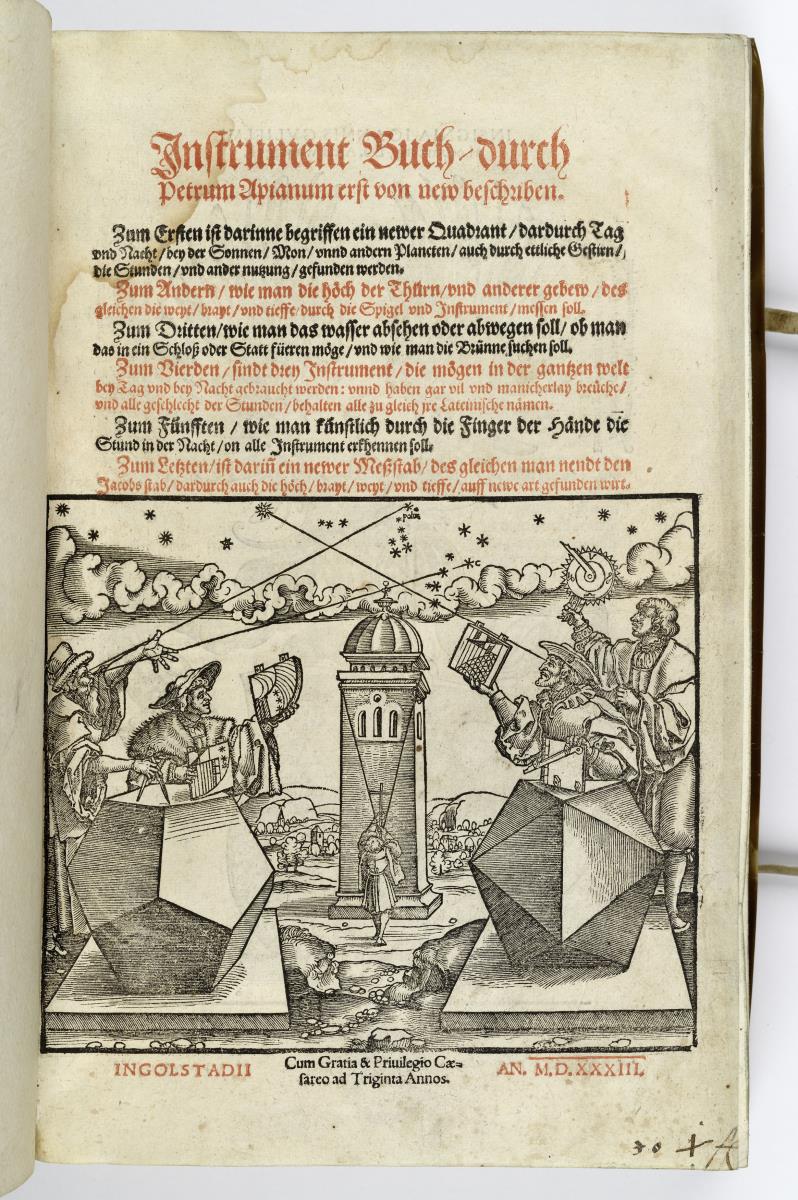 Instrument Buch / durch
Petrum Apianum erst von new beschriben.
Zum Ersten ist darinne begriffen ein newer Quadrant / dardurch Tag
vnd Nacht / bey der Sonnen / Mon / vnnd andern Planeten / auch durch ettliche Gestirn /
die Stunden / vnd ander nutzung / gefunden werden.
Zum Andern / wie man die höch der Thürn / vnd anderer gebew / des
gleichen die weyt / brayt / vnd tieffe / durch die Spigel vnd Instrument / messen soll.
Zum Dritten / wie man das wasser absehen oder abwegen soll / ob man
das in ein Schloß oder Statt füeren möge / vnd wie man die Brünne suchen soll.
Zum Vierden / sindt drey Instrument / die mögen in der gantzen welt
bey Tag vnd bey Nacht gebraucht werden: vnnd haben gar vil vnd manicherlay breüche /
vnd alle geschlecht der Stunden / behalten alle zu gleich jre Lateinische nämen.
Zum Fünfften / wie man künstlich durch die Finger der Hände die
Stund in der Nacht / on alle Instrument erkhennen soll.
Zum Letzten / ist dariñ ein newer Meßstab / des gleichen man nendt den
Jacobs stab / dardurch auch die höch / brayt / weyt / vnd tieffe / auff newe art gefunden wirt.
Polus
C
INGOLSTADII
Cum Gratia & Priuilegio Cæ-
sareo ad Triginta Annos.
AN. M.D.XXXIII.
30